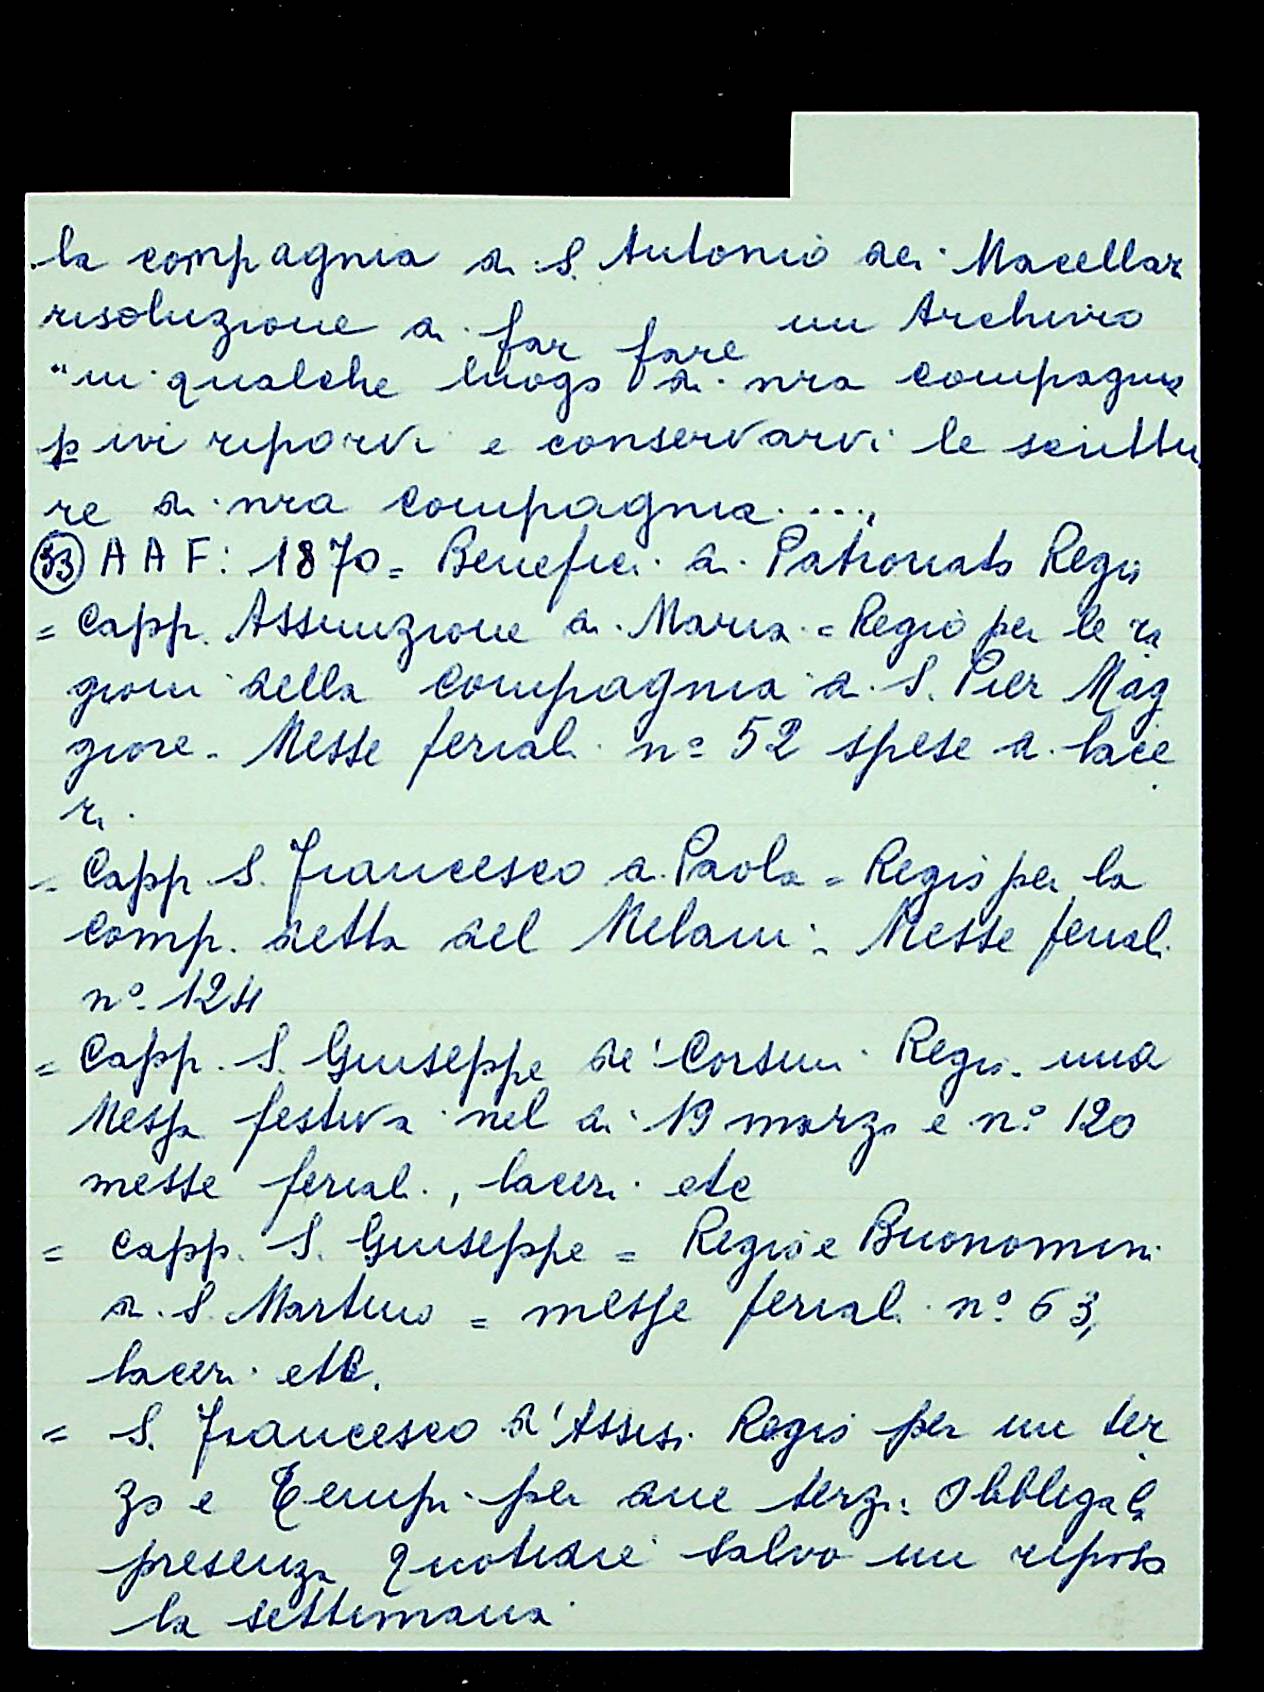 la compagnia di S. Antonio dei Macellar
risoluzione di far fare un Archivio
"in qualche luogo di nra compagnia
p ivi riporvi e conservarvi le scrittu
re di nra compagnia....
33 A A F: 1870 = Benefici di Patronato Regio
= Capp. Assunzione di Maria = Regio per le ra
gioni della Compagnia di S. Pier Mag
giore - Messe feriali nº 52 spese di lace
ri.
- Capp. S. Francesco di Paola = Regio per la
Comp. detta del Melani = Messe feriali
nº 124
= Capp. S. Giuseppe de' Corsini Regio - una
Messa festiva nel di 19 marzo e nº 120
messe feriali, laceri etc
= Capp. S. Giuseppe = Regio e Buonomini
di S. Martino = messe feriali nº 63,
laceri etc.
= S. Francesco d'Assisi Regio per un ter
zo e Tempi per due terzi: Obbligo di
presenza quotidie salvo un riposo
la settimana